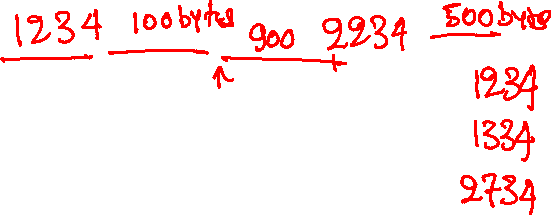 1234 100bytes 900 2234 500bytes
1234
1334
2734